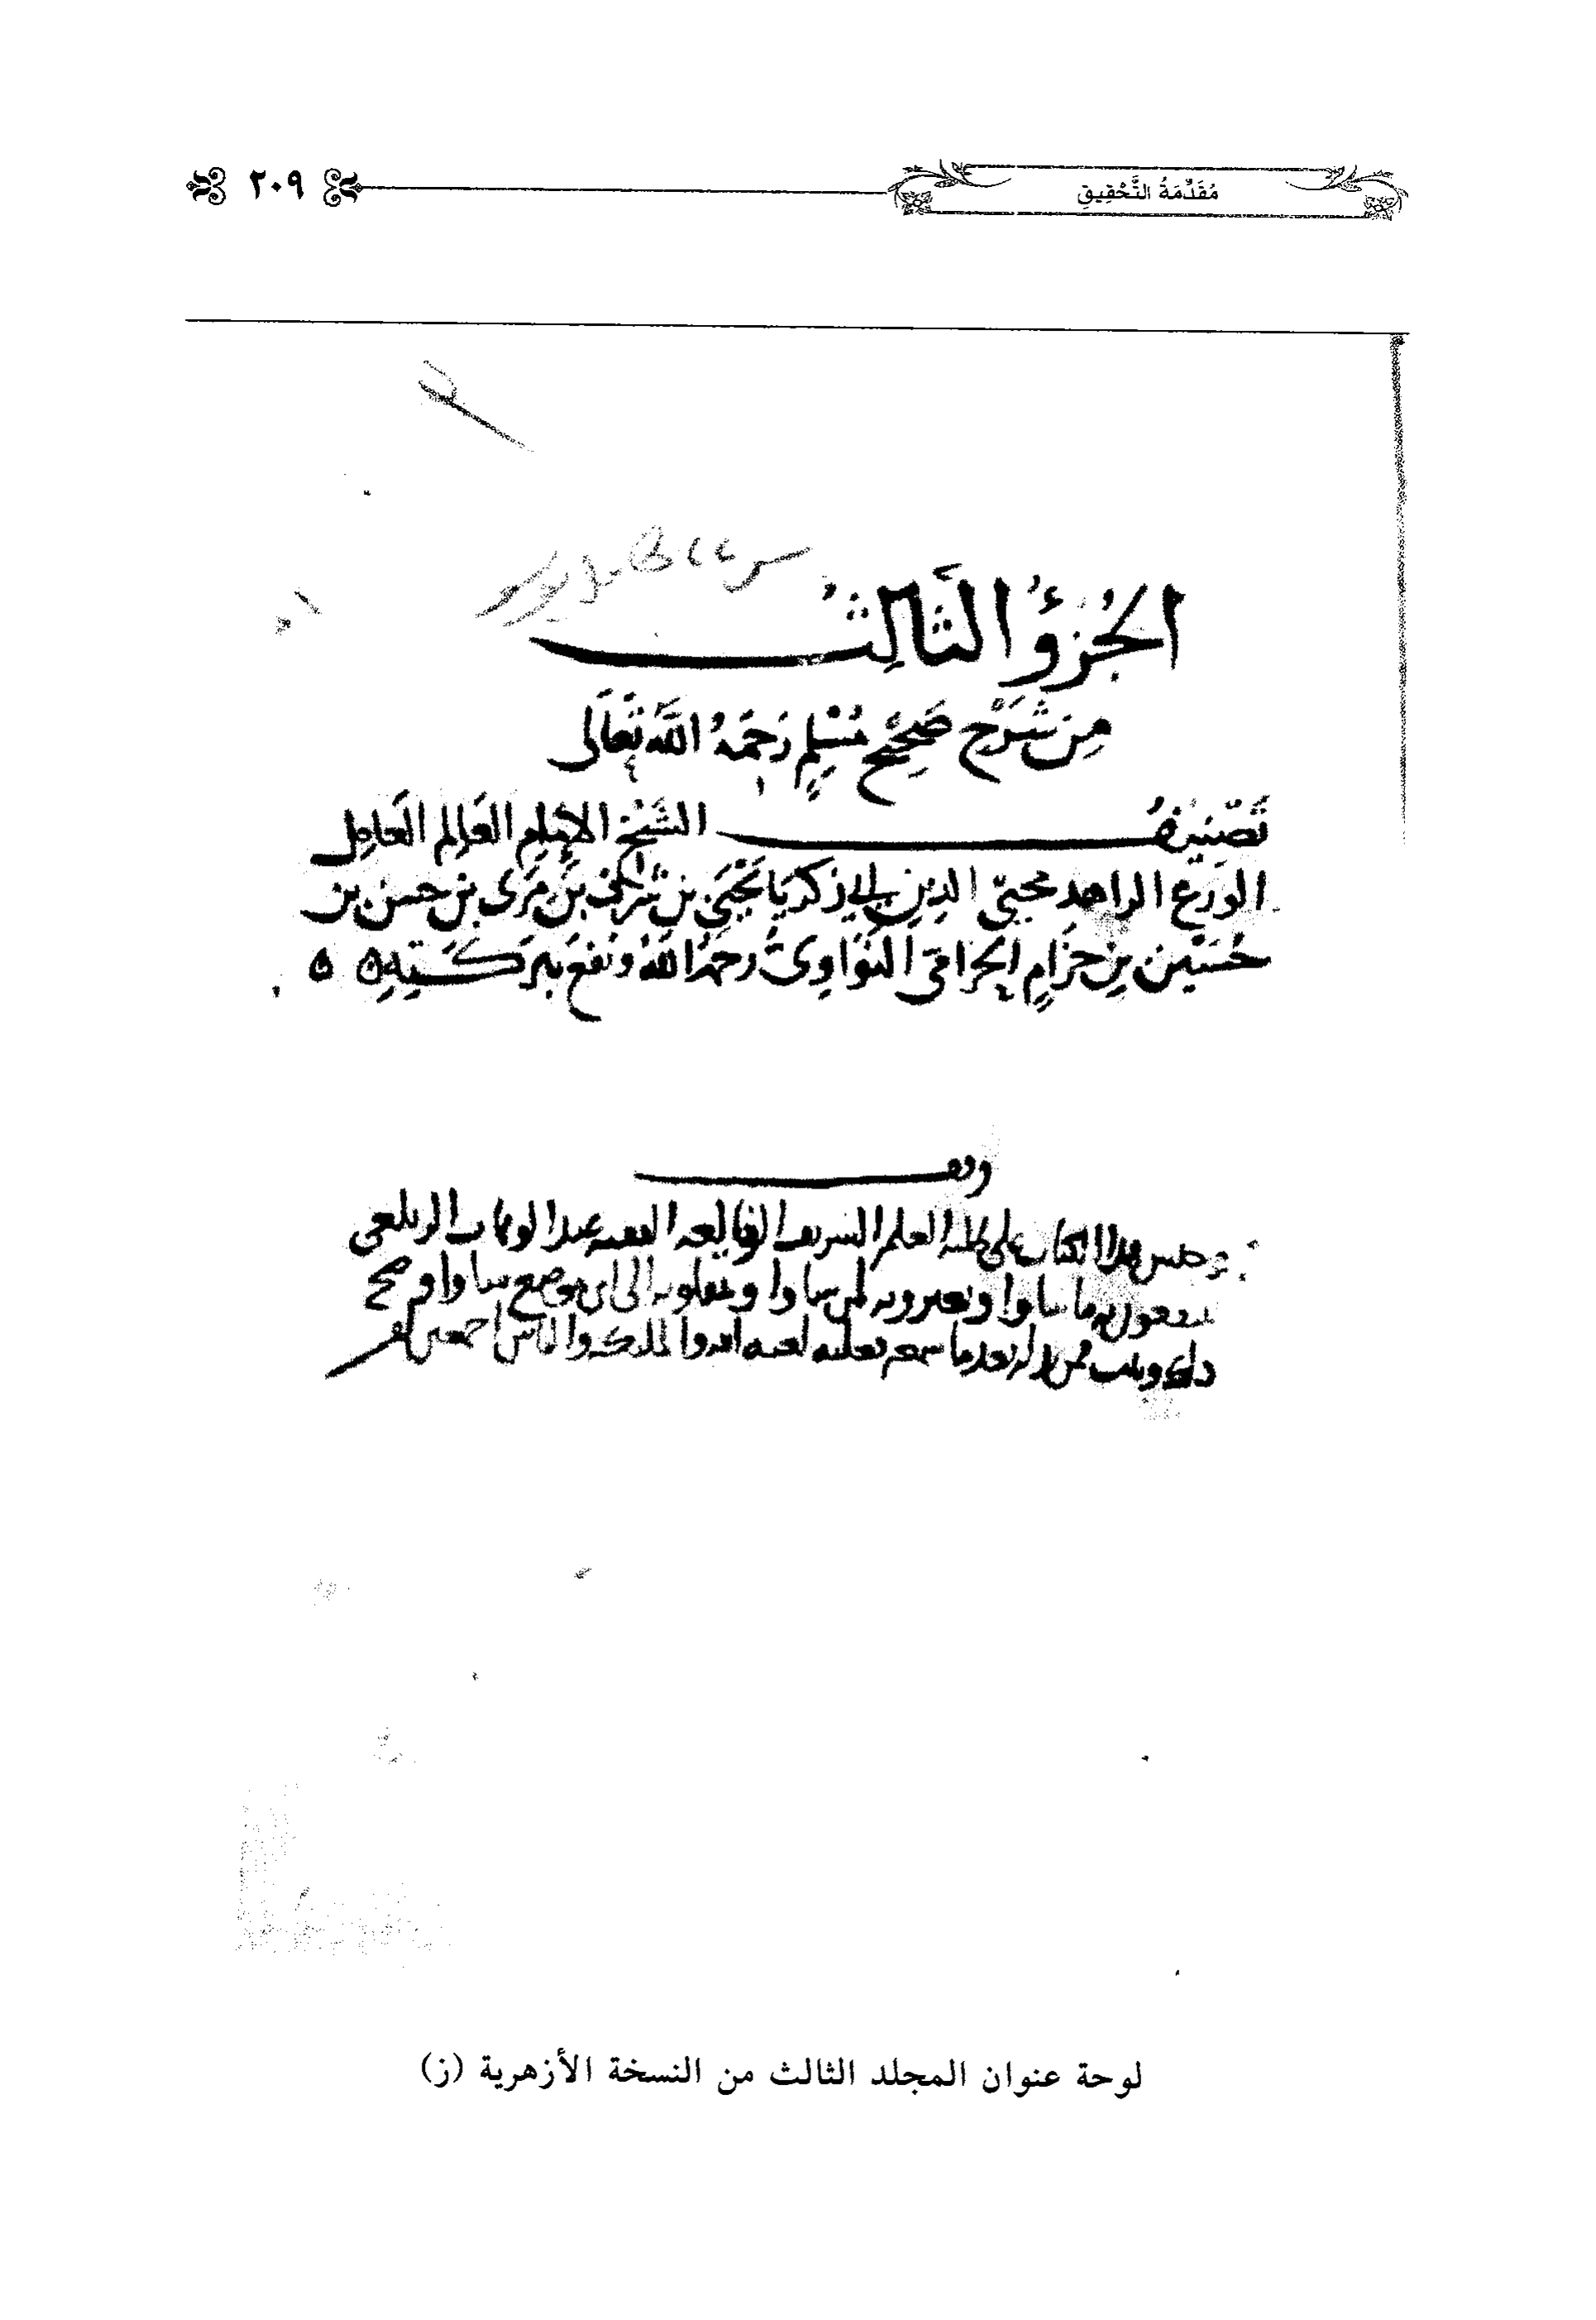 مُقَدِّمَةُ التَّحْقِيقِ
٢٠٩
الجُزْءُ الثَّالِثُ
مِن شَرْحِ صَحِيْحِ مُسْلِمٍ رَحِمَهُ اللَّهُ تَعَالَى
تَصْنِيفُ الشَّيْخِ الإِمَامِ العَالِمِ العَامِلِ
الورع الزاهد محيي الدين أبي زكريا يحيى بن شرف بن مرى بن حسن بن
حُسَيْن بن حزامٍ الحزامي النَّوَاوِىّ رحمه الله ونفع ببركته
وقف
وحبس هذا الكتاب على طلبة العلم الشريف الفقيه عبد الوهاب الزيلعى
ينتفعون به ما شاوا ويعيرونه لمن شاوا وينقلونه إلى اى موضع شاوا وقد صح
ذلك وثبت فمن بدله بعد ما سمعه فعليه لعنة الله والملائكة والناس اجمعين
لوحة عنوان المجلد الثالث من النسخة الأزهرية (ز)